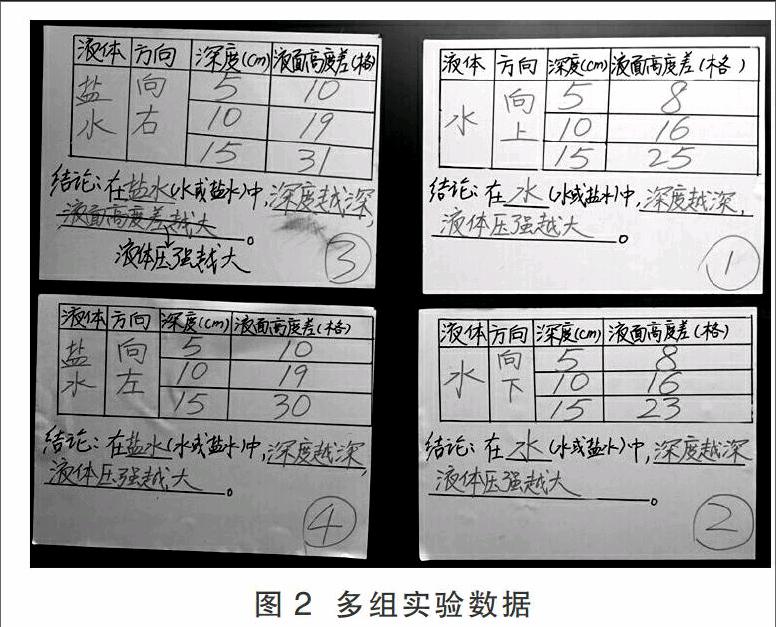 液体 方向 深度(cm) 液面高度差(格)
盐水 向右 5 10
10 19
15 31
结论:在盐水(水或盐水)中,深度越深,
液面高度差越大。
液体压强越大
③
液体 方向 深度(cm) 液面高度差(格)
水 向上 5 8
10 16
15 25
结论:在水(水或盐水)中,深度越深,
液体压强越大。
①
液体 方向 深度(cm) 液面高度差(格)
盐水 向左 5 10
10 19
15 30
结论:在盐水(水或盐水)中,深度越深,
液体压强越大。
④
液体 方向 深度(cm) 液面高度差(格)
水 向下 5 8
10 16
15 23
结论:在水(水或盐水)中,深度越深
液体压强越大。
②
图 2 多组实验数据